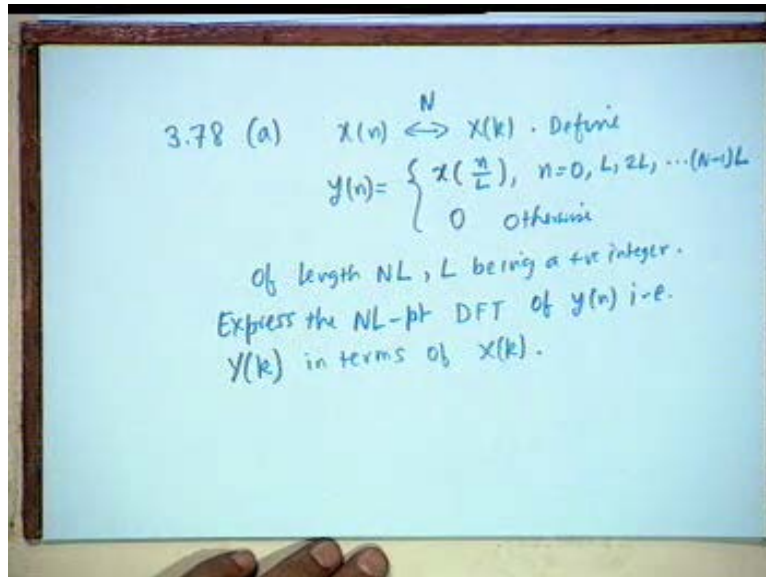 3.78 (a) x(n) <-> X(k) . Define
N
y(n) = { x(n/L), n=0, L, 2L, ...(N-1)L
0 otherwise
of length NL, L being a +ve integer.
Express the NL-pt DFT of y(n) i-e.
Y(k) in terms of X(k).